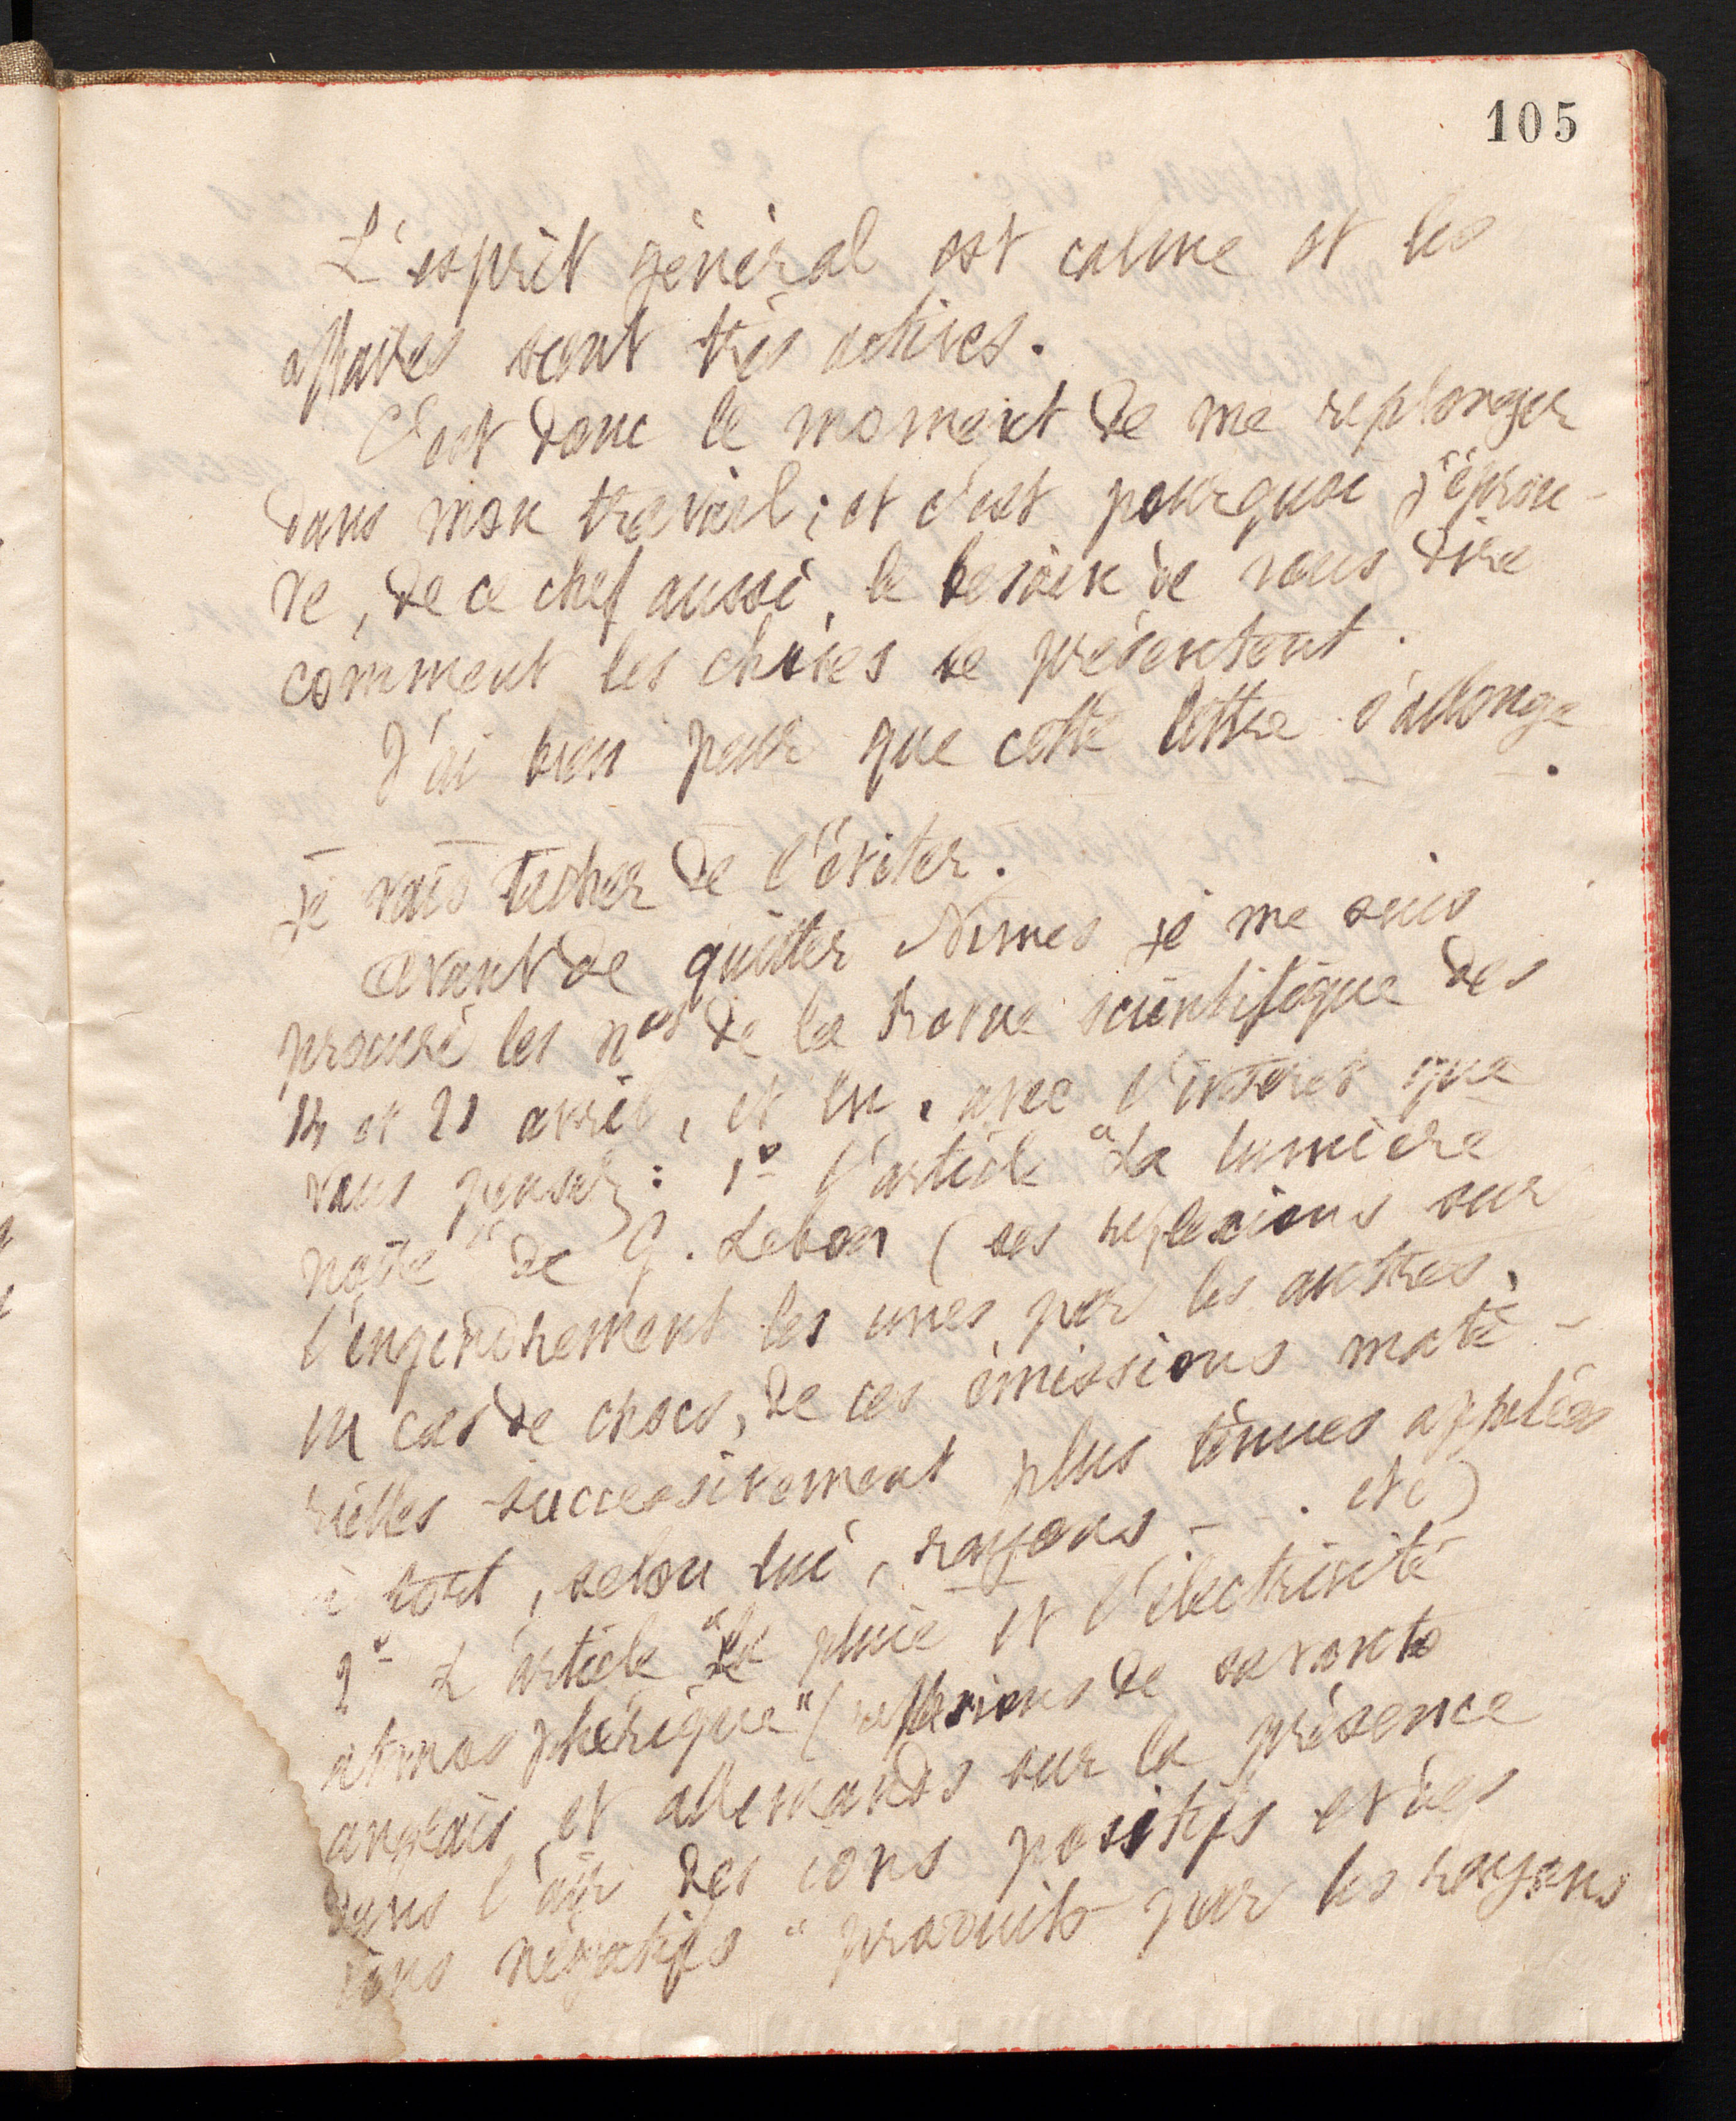 105
L'esprit général est calme et les
affaires sont très actives.
C'est donc le moment de me replonger
dans mon travail ; et c'est pourquoi j'éprou-
ve, de ce chef aussi, le besoin de vous dire
comment les choses se présentent.
J'ai bien peur que cette lettre s'allonge.
Je vais tacher de l'éviter.
Avant de quitter Nimes je me suis
procuré les nos de la Revue scientifique des
14 et 21 avril, et lu, avec l'intérêt que
vous pensez : 1° l'article "La lumière
noire" de G. Lebon (ses reflexions sur
l'engendrement les unes par les autres,
en cas de chocs, de ces émissions maté-
rielles successivement plus ténues appelées
à tort, selon lui, rayons - . etc)
2° L'article "La pluie et l'électricité
atmosphérique" (reflexions de savants
anglais et allemands sur la présence
dans l'air des ions positifs et des
ions négatifs " produits par les rayons